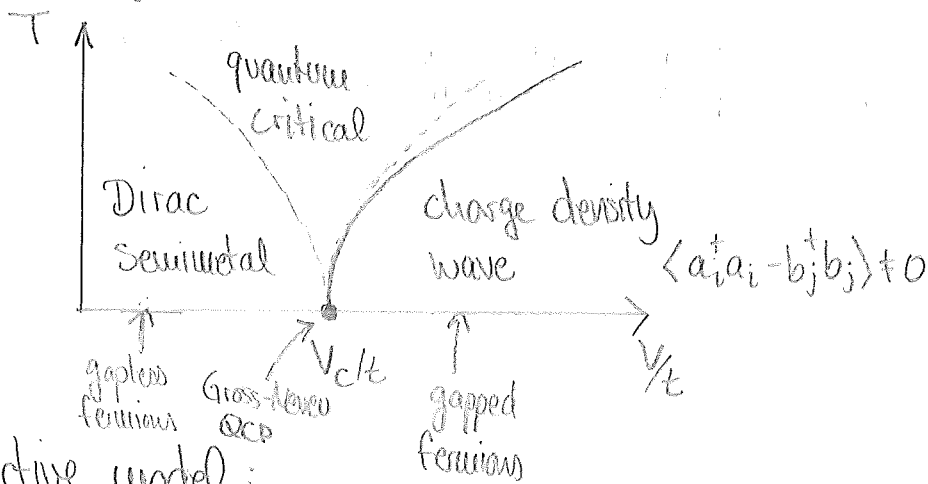 T
quantum
critical
Dirac
semimetal
charge density
wave
⟨a_i^† a_i - b_j^† b_j⟩ ≠ 0
V_c/t
V/t
gapless
fermions
Gross-Neveu
QCP
gapped
fermions
ctive model: